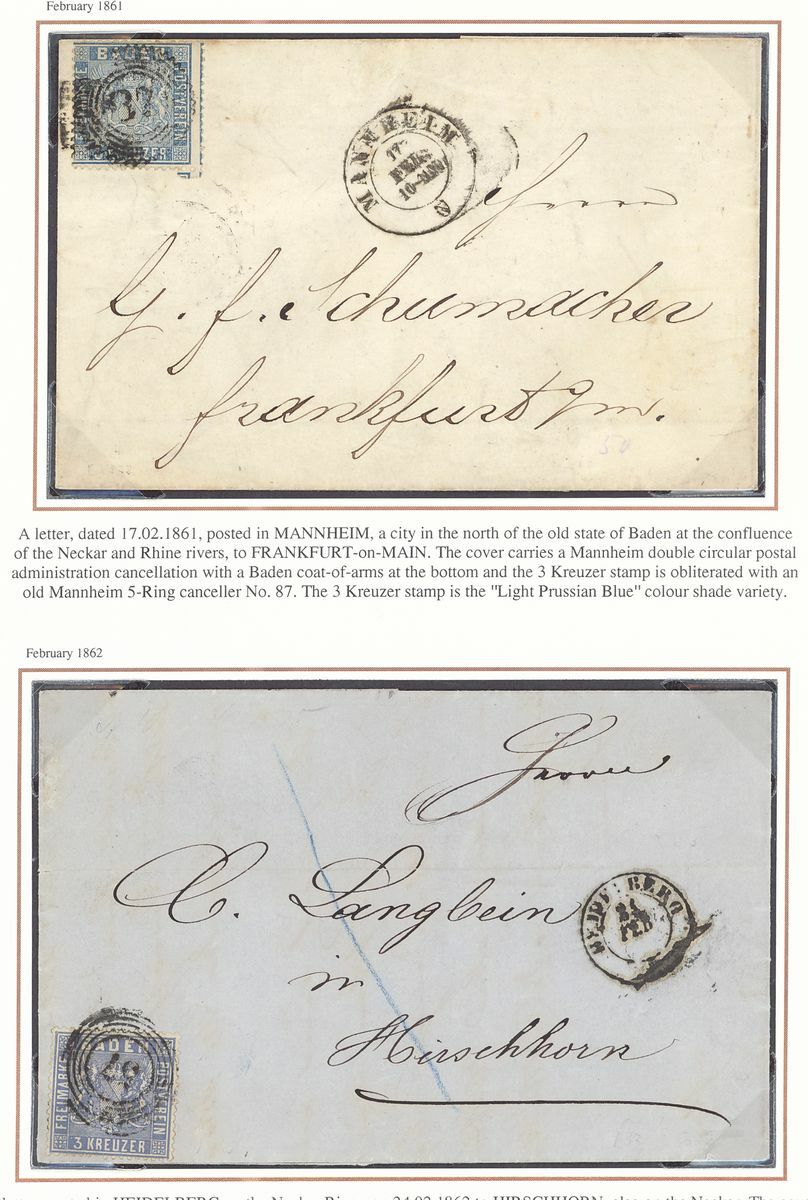 February 1861
BADEN
POSTVEREIN
KREUZER
87
MANNHEIM
17
FEB.
2
Herrn
G. F. Schumacher
Frankfurt a/m.
50
A letter, dated 17.02.1861, posted in MANNHEIM, a city in the north of the old state of Baden at the confluence
of the Neckar and Rhine rivers, to FRANKFURT-on-MAIN. The cover carries a Mannheim double circular postal
administration cancellation with a Baden coat-of-arms at the bottom and the 3 Kreuzer stamp is obliterated with an
old Mannheim 5-Ring canceller No. 87. The 3 Kreuzer stamp is the "Light Prussian Blue" colour shade variety.
February 1862
Herrn
C. Langbein
HEIDELBERG
24
FEB
in
Hirschhorn
BADEN
57
FREIMARKE
POSTVEREIN
3 KREUZER
HEIDELBERG
24.02.1862 to HIRSCHHORN, also on the Neckar. The